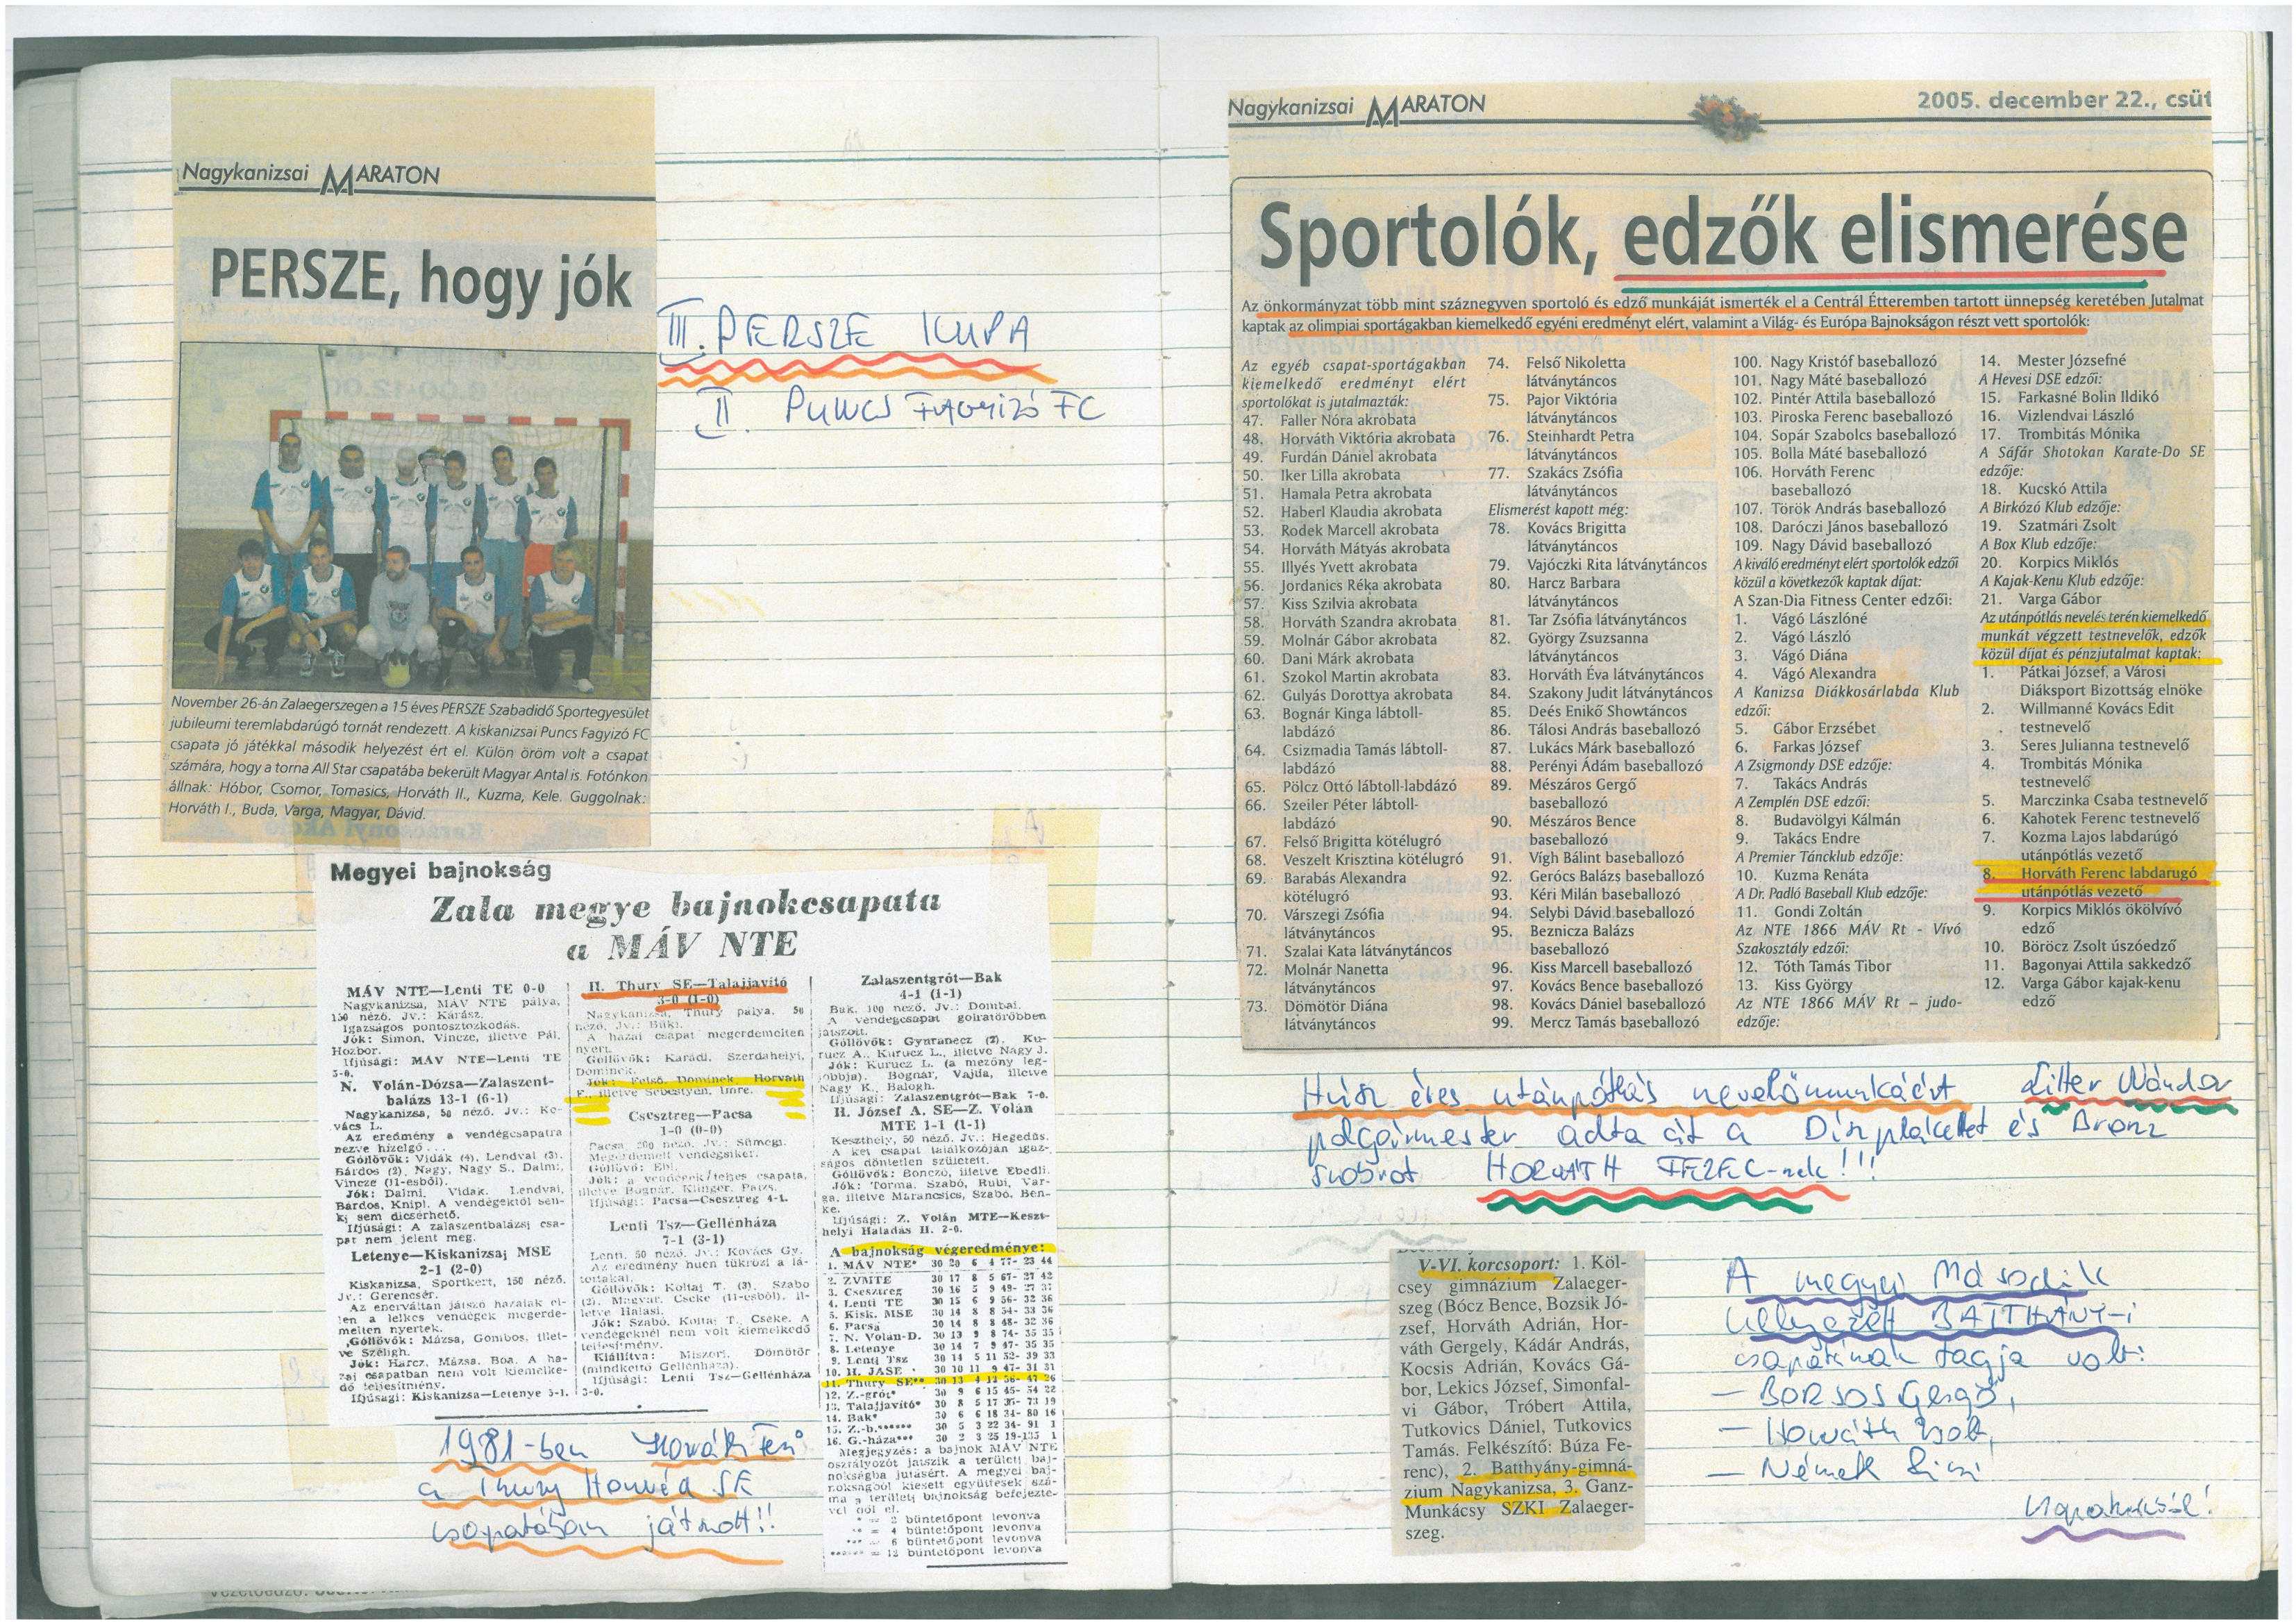 Nagykanizsai MARATON
PERSZE, hogy jók
III. PERSZE KUPA
II. PUNCS FAGYIZÓ FC
November 26-án Zalaegerszegen a 15 éves PERSZE Szabadidő Sportegyesület
jubileumi teremlabdarúgó tornát rendezett. A kiskanizsai Puncs Fagyizó FC
csapata jó játékkal második helyezést ért el. Külön öröm volt a csapat
számára, hogy a torna All Star csapatába bekerült Magyar Antal is. Fotónkon
állnak: Hóbor, Csomor, Tomasics, Horváth II., Kuzma, Kele. Guggolnak:
Horváth I., Buda, Varga, Magyar, Dávid.
Megyei bajnokság
Zala megye bajnokcsapata
a MÁV NTE
MÁV NTE—Lenti TE 0-0
Nagykanizsa, MÁV NTE pálya,
150 néző. Jv.: Kárász.
Igazságos pontosztozkodás.
Jók: Simon, Vincze, illetve Pál,
Hozbor.
Ifjúsági: MÁV NTE—Lenti TE
3-0.
N. Volán-Dózsa—Zalaszent-
balázs 13-1 (6-1)
Nagykanizsa, 50 néző. Jv.: Ko-
vács L.
Az eredmény a vendégcsapatra
nézve hízelgő...
Góllövők: Vidák (4), Lendvai (3),
Bárdos (2), Nagy, Nagy S., Dalmi,
Vincze (11-esből).
Jók: Dalmi, Vidák, Lendvai,
Bárdos, Knipl. A vendégektől sen-
ki sem dicsérhető.
Ifjúsági: A zalaszentbalázsi csa-
pat nem jelent meg.
Letenye—Kiskanizsai MSE
2-1 (2-0)
Kiskanizsa, Sportkert, 150 néző.
Jv.: Gerencsér.
Az enerváltan játszó hazaiak el-
len a lelkes vendégek megérde-
melten nyertek.
Góllövők: Mázsa, Gombos, illet-
ve Széligh.
Jók: Harcz, Mázsa, Boa. A ha-
zai csapatban nem volt kiemelke-
dő teljesítmény.
Ifjúsági: Kiskanizsa—Letenye 5-1.
H. Thury SE—Talajjavító
3-0 (1-0)
Nagykanizsa, Thury pálya, 50
néző. Jv.: Büki.
A hazai csapat megérdemelten
nyert.
Góllövők: Karádi, Szerdahelyi,
Dominek.
Jók: Felső, Dominek, Horváth
F., illetve Sebestyén, Imre.
Csesztreg—Pacsa
1-0 (0-0)
Pacsa, 200 néző. Jv.: Sümegi.
Megérdemelt vendégsiker.
Góllövő: Ebl.
Jók: a vendégek teljes csapata,
illetve Bognár, Klinger, Paizs.
Ifjúsági: Pacsa—Csesztreg 4-1.
Lenti Tsz—Gellénháza
7-1 (3-1)
Lenti, 50 néző. Jv.: Kovács Gy.
Az eredmény hűen tükrözi a lá-
tottakat.
Góllövők: Koltai T. (3), Szabó
(2), Magyar, Cseke (11-esből), il-
letve Halasi.
Jók: Szabó, Koltai T., Cseke. A
vendégeknél nem volt kiemelkedő
teljesítmény.
Kiállítva: Miszori, Dömötör
(mindkettő Gellénháza).
Ifjúsági: Lenti Tsz—Gellénháza
3-0.
Zalaszentgrót—Bak
4-1 (1-1)
Bak, 100 néző. Jv.: Dombai.
A vendégcsapat gólratörőbben
játszott.
Góllövők: Gyuranecz (2), Ku-
rucz A., Kurucz L., illetve Nagy J.
Jók: Kurucz L. (a mezőny leg-
jobbja), Bognár, Vajda, illetve
Nagy K., Balogh.
Ifjúsági: Zalaszentgrót—Bak 7-0.
H. József A. SE—Z. Volán
MTE 1-1 (1-1)
Keszthely, 50 néző. Jv.: Hegedűs.
A két csapat találkozóján igaz-
ságos döntetlen született.
Góllövők: Bonczó, illetve Ebedli.
Jók: Torma, Szabó, Rubi, Var-
ga, illetve Marancsics, Szabó, Ben-
ke.
Ifjúsági: Z. Volán MTE—Keszt-
helyi Haladás II. 2-0.
A bajnokság végeredménye:
1. MÁV NTE* 30 20 6 4 77- 23 44
2. ZVMTE 30 17 8 5 67- 27 42
3. Csesztreg 30 16 5 9 49- 27 37
4. Lenti TE 30 15 6 9 56- 32 36
5. Kisk. MSE 30 14 8 8 54- 33 36
6. Pacsa 30 14 8 8 48- 32 36
7. N. Volán-D. 30 13 9 8 74- 35 35
8. Letenye 30 14 7 9 47- 35 35
9. Lenti Tsz 30 14 5 11 52- 39 33
10. H. JASE 30 10 11 9 47- 31 31
11. Thury SE** 30 13 4 13 56- 47 26
12. Z.-grót* 30 9 6 15 45- 54 22
13. Talajjavító* 30 8 5 17 35- 73 19
14. Bak* 30 6 6 18 34- 80 16
15. Z.-b.****** 30 5 3 22 34- 91 1
16. G.-háza*** 30 2 3 25 19-135 1
Megjegyzés: a bajnok MÁV NTE
osztályozót játszik a területi baj-
nokságba jutásért. A megyei baj-
nokságból kieső együttesek szá-
ma a területi bajnokság befejezté-
vel dől el.
* = 2 büntetőpont levonva
** = 4 büntetőpont levonva
*** = 6 büntetőpont levonva
****** = 12 büntetőpont levonva
1981-ben Horváth Feri
a Thury Honvéd SE
csapatában játszott!!
Nagykanizsai MARATON
2005. december 22., csüt
Sportolók, edzők elismerése
Az önkormányzat több mint száznegyven sportoló és edző munkáját ismerték el a Centrál Étteremben tartott ünnepség keretében Jutalmat
kaptak az olimpiai sportágakban kiemelkedő egyéni eredményt elért, valamint a Világ- és Európa Bajnokságon részt vett sportolók:
Az egyéb csapat-sportágakban
kiemelkedő eredményt elért
sportolókat is jutalmazták:
47. Faller Nóra akrobata
48. Horváth Viktória akrobata
49. Furdán Dániel akrobata
50. Iker Lilla akrobata
51. Hamala Petra akrobata
52. Haberl Klaudia akrobata
53. Rodek Marcell akrobata
54. Horváth Mátyás akrobata
55. Illyés Yvett akrobata
56. Jordanics Réka akrobata
57. Kiss Szilvia akrobata
58. Horváth Szandra akrobata
59. Molnár Gábor akrobata
60. Dani Márk akrobata
61. Szokol Martin akrobata
62. Gulyás Dorottya akrobata
63. Bognár Kinga lábtoll-
labdázó
64. Csizmadia Tamás lábtoll-
labdázó
65. Pölcz Ottó lábtoll-labdázó
66. Szeiler Péter lábtoll-
labdázó
67. Felső Brigitta kötélugró
68. Veszelt Krisztina kötélugró
69. Barabás Alexandra
kötélugró
70. Várszegi Zsófia
látványtáncos
71. Szalai Kata látványtáncos
72. Molnár Nanetta
látványtáncos
73. Dömötör Diána
látványtáncos
74. Felső Nikoletta
látványtáncos
75. Pajor Viktória
látványtáncos
76. Steinhardt Petra
látványtáncos
77. Szakács Zsófia
látványtáncos
Elismerést kapott még:
78. Kovács Brigitta
látványtáncos
79. Vajóczki Rita látványtáncos
80. Harcz Barbara
látványtáncos
81. Tar Zsófia látványtáncos
82. György Zsuzsanna
látványtáncos
83. Horváth Éva látványtáncos
84. Szakony Judit látványtáncos
85. Deés Enikő Showtáncos
86. Tálosi András baseballozó
87. Lukács Márk baseballozó
88. Perényi Ádám baseballozó
89. Mészáros Gergő
baseballozó
90. Mészáros Bence
baseballozó
91. Vígh Bálint baseballozó
92. Gerócs Balázs baseballozó
93. Kéri Milán baseballozó
94. Selybi Dávid baseballozó
95. Beznicza Balázs
baseballozó
96. Kiss Marcell baseballozó
97. Kovács Bence baseballozó
98. Kovács Dániel baseballozó
99. Mercz Tamás baseballozó
100. Nagy Kristóf baseballozó
101. Nagy Máté baseballozó
102. Pintér Attila baseballozó
103. Piroska Ferenc baseballozó
104. Sopár Szabolcs baseballozó
105. Bolla Máté baseballozó
106. Horváth Ferenc
baseballozó
107. Török András baseballozó
108. Daróczi János baseballozó
109. Nagy Dávid baseballozó
A kiváló eredményt elért sportolók edzői
közül a következők kaptak díjat:
A Szan-Dia Fitness Center edzői:
1. Vágó Lászlóné
2. Vágó László
3. Vágó Diána
4. Vágó Alexandra
A Kanizsa Diákkosárlabda Klub
edzői:
5. Gábor Erzsébet
6. Farkas József
A Zsigmondy DSE edzője:
7. Takács András
A Zemplén DSE edzői:
8. Budavölgyi Kálmán
9. Takács Endre
A Premier Táncklub edzője:
10. Kuzma Renáta
A Dr. Padló Baseball Klub edzője:
11. Gondi Zoltán
Az NTE 1866 MÁV Rt - Vívó
Szakosztály edzői:
12. Tóth Tamás Tibor
13. Kiss György
Az NTE 1866 MÁV Rt – judo-
edzője:
14. Mester Józsefné
A Hevesi DSE edzői:
15. Farkasné Bolin Ildikó
16. Vizlendvai László
17. Trombitás Mónika
A Sáfár Shotokan Karate-Do SE
edzője:
18. Kucskó Attila
A Birkózó Klub edzője:
19. Szatmári Zsolt
A Box Klub edzője:
20. Korpics Miklós
A Kajak-Kenu Klub edzője:
21. Varga Gábor
Az utánpótlás nevelés terén kiemelkedő
munkát végzett testnevelők, edzők
közül díjat és pénzjutalmat kaptak:
1. Pátkai József, a Városi
Diáksport Bizottság elnöke
2. Willmanné Kovács Edit
testnevelő
3. Seres Julianna testnevelő
4. Trombitás Mónika
testnevelő
5. Marczinka Csaba testnevelő
6. Kahotek Ferenc testnevelő
7. Kozma Lajos labdarúgó
utánpótlás vezető
8. Horváth Ferenc labdarugó
utánpótlás vezető
9. Korpics Miklós ökölvívó
edző
10. Böröcz Zsolt úszóedző
11. Bagonyai Attila sakkedző
12. Varga Gábor kajak-kenu
edző
Húsz éves utánpótlás nevelőmunkáért Litter Nándor
polgármester adta át a Díszplakettet és Bronz
szobrot HORVÁTH FERENC-nek!!!
V-VI. korcsoport: 1. Köl-
csey gimnázium Zalaeger-
szeg (Bócz Bence, Bozsik Jó-
zsef, Horváth Adrián, Hor-
váth Gergely, Kádár András,
Kocsis Adrián, Kovács Gá-
bor, Lekics József, Simonfal-
vi Gábor, Tróbert Attila,
Tutkovics Dániel, Tutkovics
Tamás. Felkészítő: Búza Fe-
renc), 2. Batthyány-gimná-
zium Nagykanizsa, 3. Ganz-
Munkácsy SZKI Zalaeger-
szeg.
A megyei Második
helyezett BATTHÁNY-i
csapatának tagja volt:
– BORSOS Gergő,
– Horváth Zsolt,
– Németh